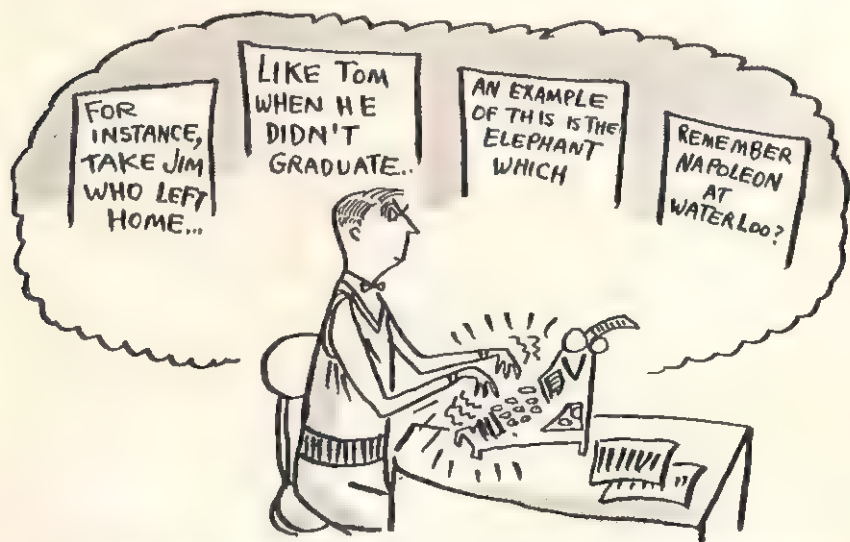 FOR
INSTANCE,
TAKE JIM
WHO LEFT
HOME...
LIKE TOM
WHEN HE
DIDN'T
GRADUATE..
AN EXAMPLE
OF THIS IS THE
ELEPHANT
WHICH
REMEMBER
NAPOLEON
AT
WATERLOO?